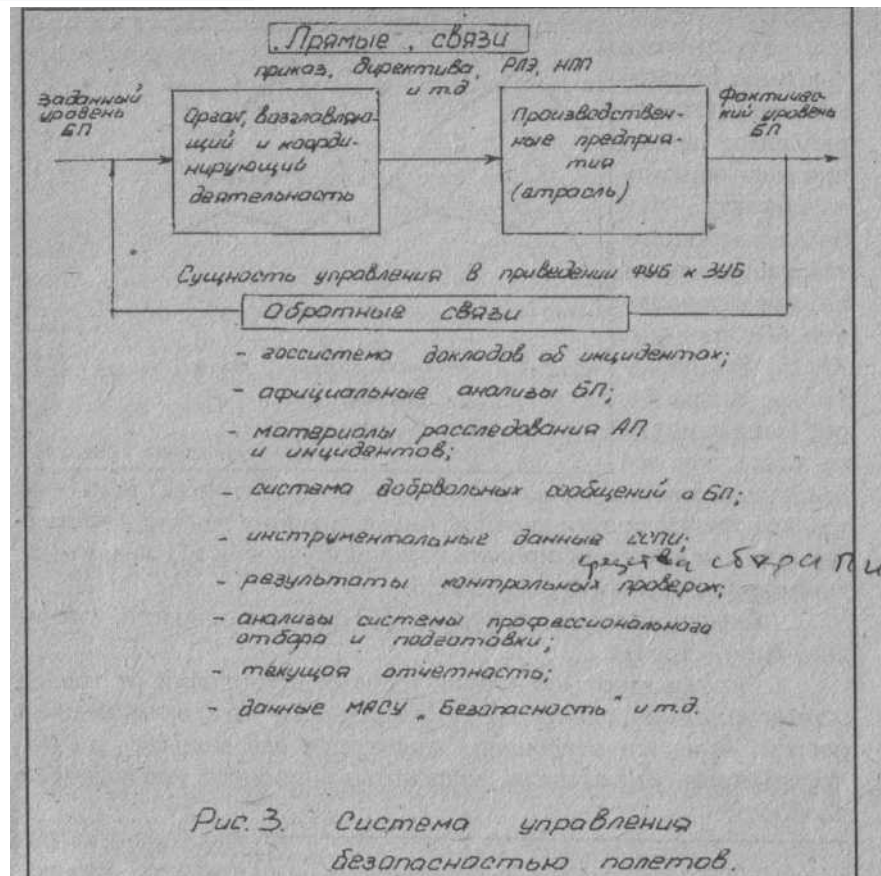 Прямые связи
приказ, директива, РЛЭ, НПП
и т.д
Заданный
уровень
БП
Орган, возглавляю-
щий и коорди-
нирующий
деятельность
Производствен-
ные предприя-
тия
(отрасль)
Фактичес-
кий уровень
БП
Сущность управления в приведении ФУБ к ЗУБ
Обратные связи
- госсистема докладов об инцидентах;
- официальные анализы БП;
- материалы расследования АП
и инцидентов;
- система добровольных сообщений о БП;
- инструментальные данные ССПИ;
средства сбора П и
- результаты контрольных проверок;
- анализы системы профессионального
отбора и подготовки;
- текущая отчетность;
- данные МАСУ „Безопасность" и т.д.
Рис. 3. Система управления
безопасностью полетов.